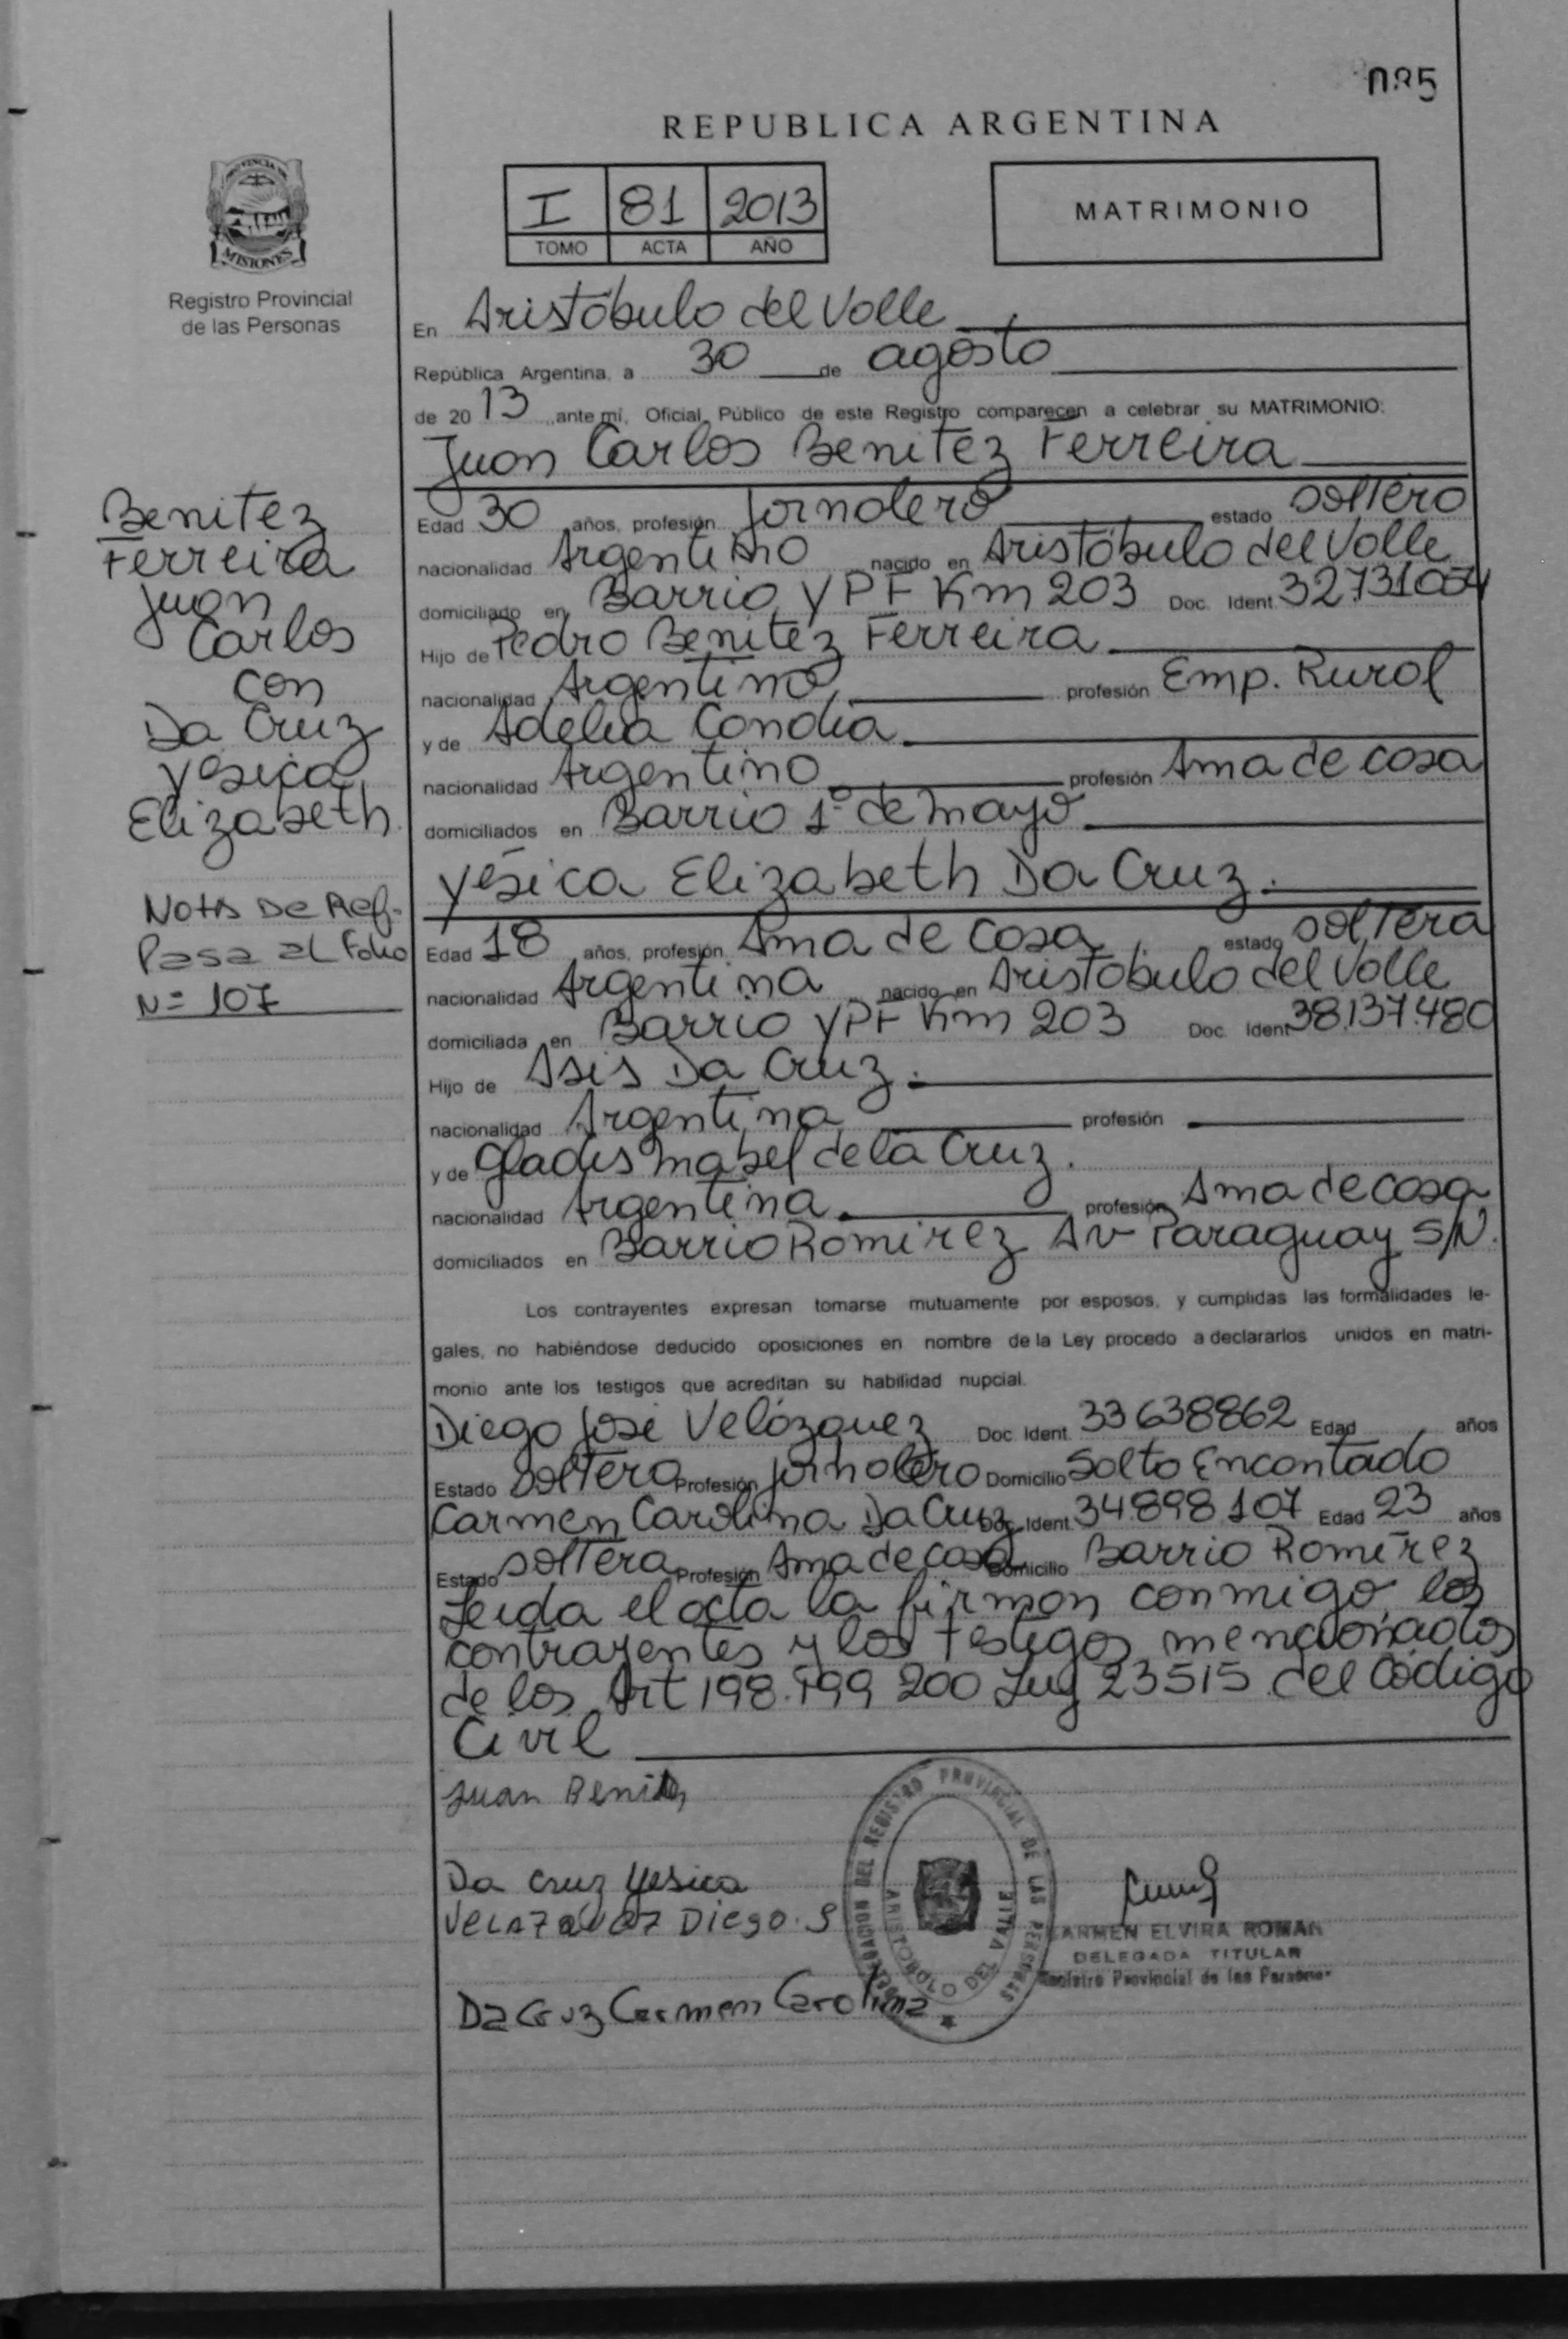 085
REPUBLICA ARGENTINA
I 81 2013
TOMO ACTA AÑO
MATRIMONIO
PROVINCIA DE
MISIONES
Registro Provincial
de las Personas
En Aristóbulo del Valle
República Argentina, a 30 de agosto
de 2013 ante mí, Oficial Público de este Registro comparecen a celebrar su MATRIMONIO:
Juan Carlos Benitez Ferreira
Edad 30 años, profesión Jornalero estado soltero
nacionalidad Argentino nacido en Aristóbulo del Valle
domiciliado en Barrio YPF Km 203 Doc. Ident.
Hijo de Pedro Benitez Ferreira
nacionalidad Argentino profesión Emp. Rural
y de Adelia Condia
nacionalidad Argentino profesión Ama de casa
domiciliados en Barrio 1º de mayo
Yésica Elizabeth Da Cruz.
Edad 18 años, profesión Ama de casa estado soltera
nacionalidad Argentina nacido en Aristóbulo del Valle
domiciliada en Barrio YPF Km 203 Doc. Ident 38.137.480
Hijo de Asis Da Cruz.
nacionalidad Argentina profesión
y de Gladis Mabel de la Cruz.
nacionalidad Argentina profesión Ama de casa
domiciliados en Barrio Romirez Av Paraguay S/N.
Los contrayentes expresan tomarse mutuamente por esposos, y cumplidas las formalidades le-
gales, no habiéndose deducido oposiciones en nombre de la Ley procedo a declararlos unidos en matri-
monio ante los testigos que acreditan su habilidad nupcial.
Diego José Velózquez Doc. Ident. 33638862 Edad años
Estado soltero Profesión jornalero Domicilio Salto Encantado
Carmen Carolina Da Cruz Doc. Ident. 34.898.107 Edad 23 años
Estado soltera Profesión Ama de casa Domicilio Barrio Romírez
Leida el acta la firman conmigo los
contrayentes y los testigos mencionados
de los Art 198.199 200 Ley 23515 del Código
Civil
Juan Benitez
Da Cruz Yesica
VELAZQUEZ Diego. J
Da Cruz Carmen Carolina
DELEGACION DEL REGISTRO PROVINCIAL DE LAS PERSONAS
ARISTOBULO DEL VALLE
CARMEN ELVIRA ROMAN
DELEGADA TITULAR
Registro Provincial de las Personas
Benitez
Ferreira
Juan
Carlos
con
Da Cruz
Yésica
Elizabeth
Nota De Ref.
Pasa al Folio
Nº 107